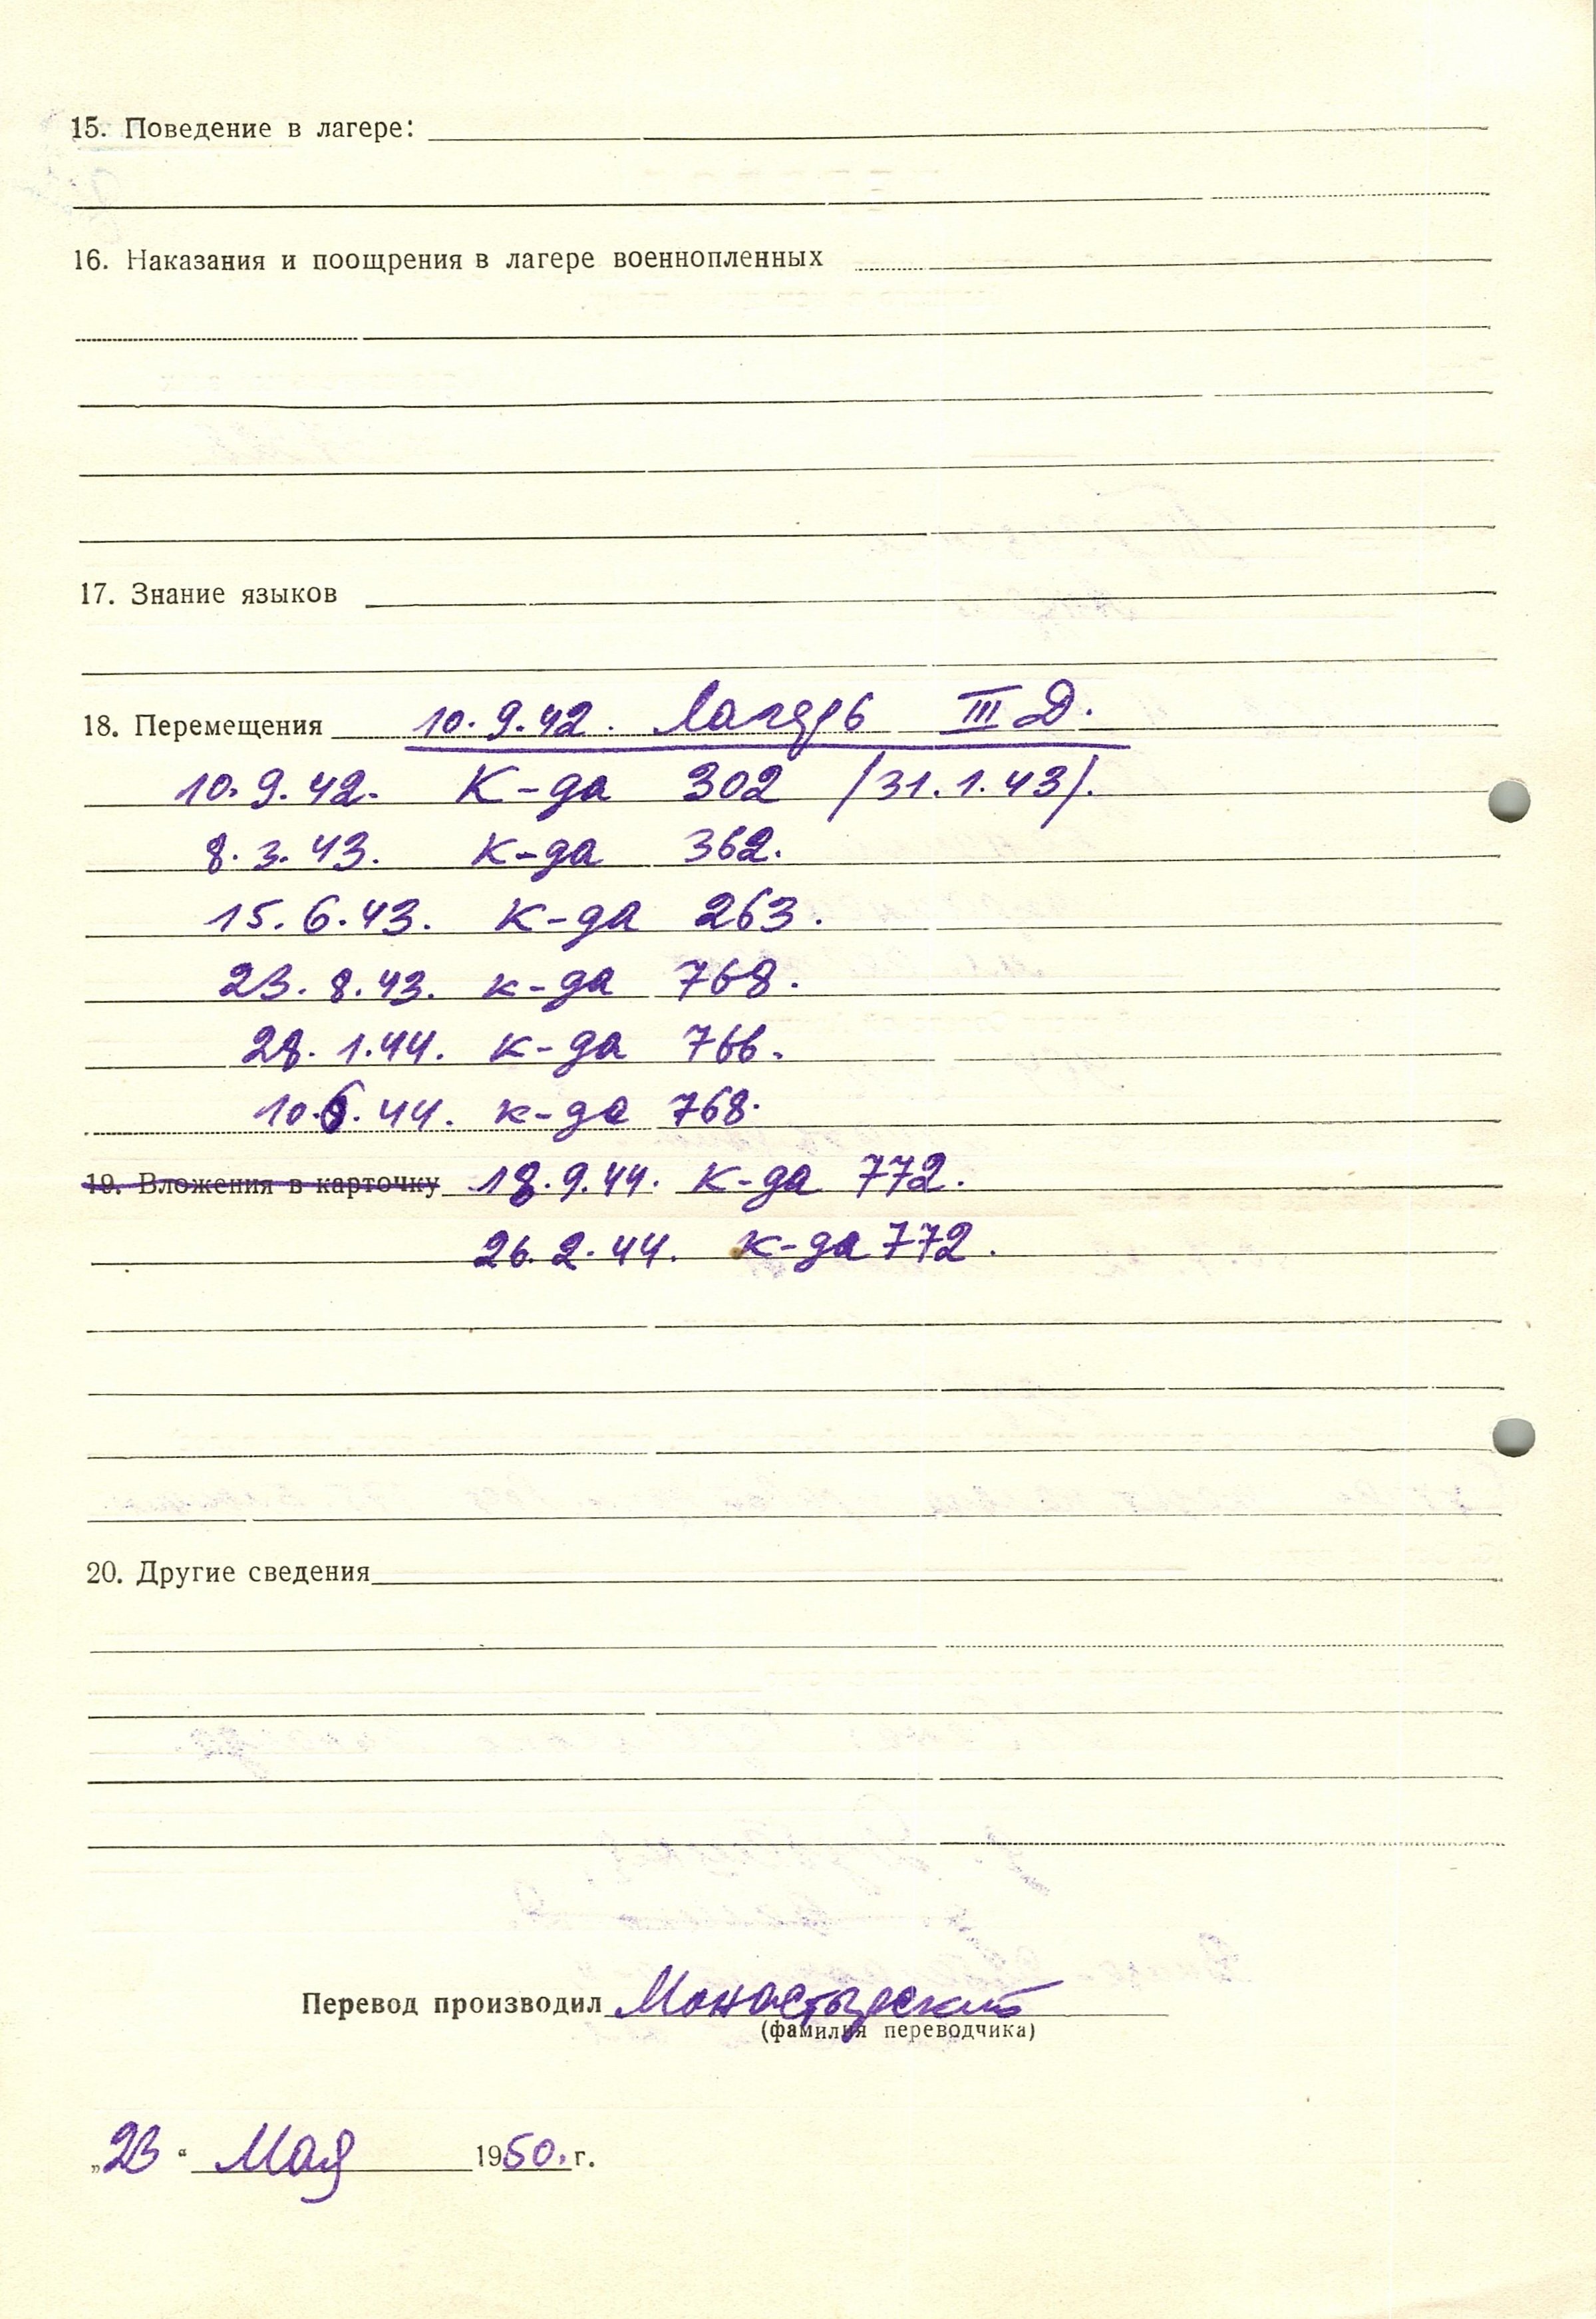 15. Поведение в лагере:
16. Наказания и поощрения в лагере военнопленных
17. Знание языков
18. Перемещения 10.9.42. Лагерь III Д.
10.9.42. К-да 302 /31.1.43/.
8.3.43. К-да 362.
15.6.43. К-да 263.
23.8.43. к-да 768.
28.1.44. к-да 766.
10.6.44. к-да 768.
19. Вложения в карточку 18.9.44. К-да 772.
26.2.44. к-да 772.
20. Другие сведения
Перевод производил Монастырский
(фамилия переводчика)
„23“ Мая 1950.г.